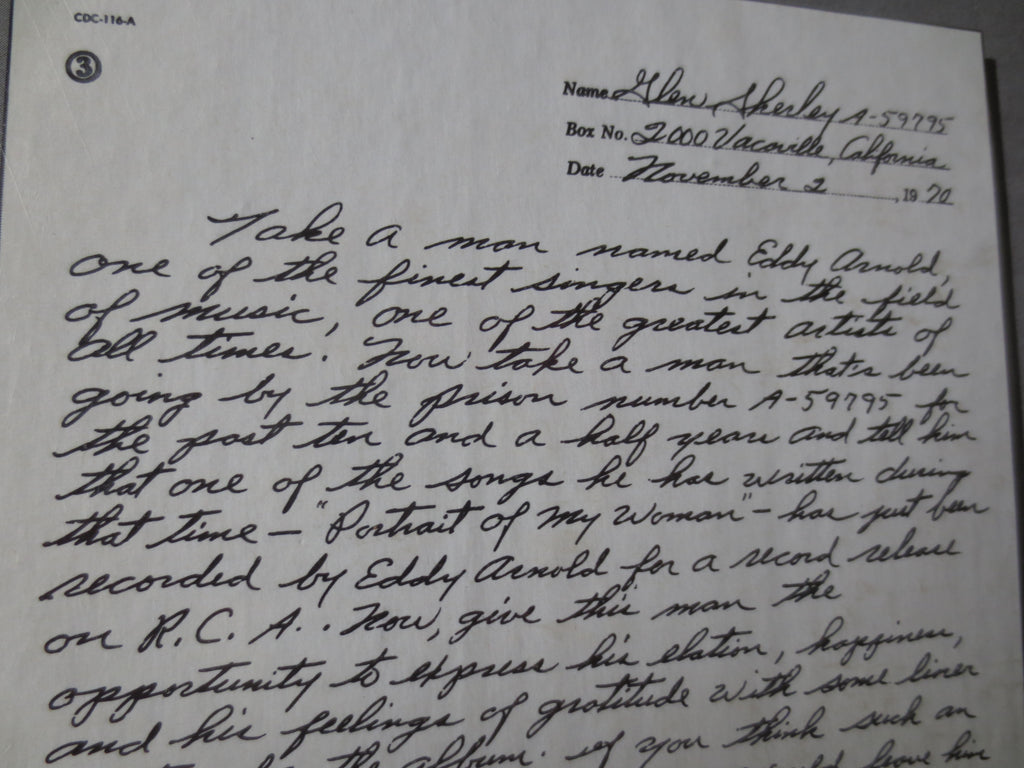 CDC-116-A
3
Name Glen Sherley A-59795
Box No. 2000 Vacaville, California
Date November 2, 1970
Take a man named Eddy Arnold,
one of the finest singers in the field
of music, one of the greatest artists of
all times. Now take a man that's been
going by the prison number A-59795 for
the past ten and a half years and tell him
that one of the songs he has written during
that time — "Portrait of My Woman" — has just been
recorded by Eddy Arnold for a record release
on R.C.A.. Now, give this man the
opportunity to express his elation, happiness,
and his feelings of gratitude with some liner
the album. If you think such an
him